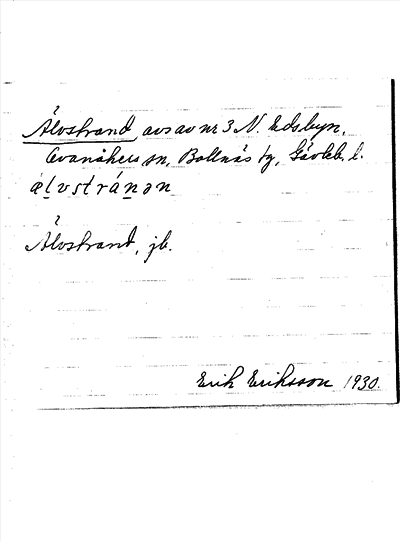 Älvstrand, avs av nr 3 N. Edsbyn,
Ovanåkers sn, Bollnäs tg, Gävleb. l.
älvstránən
Älvstrand, jb.
Erik Eriksson 1930.